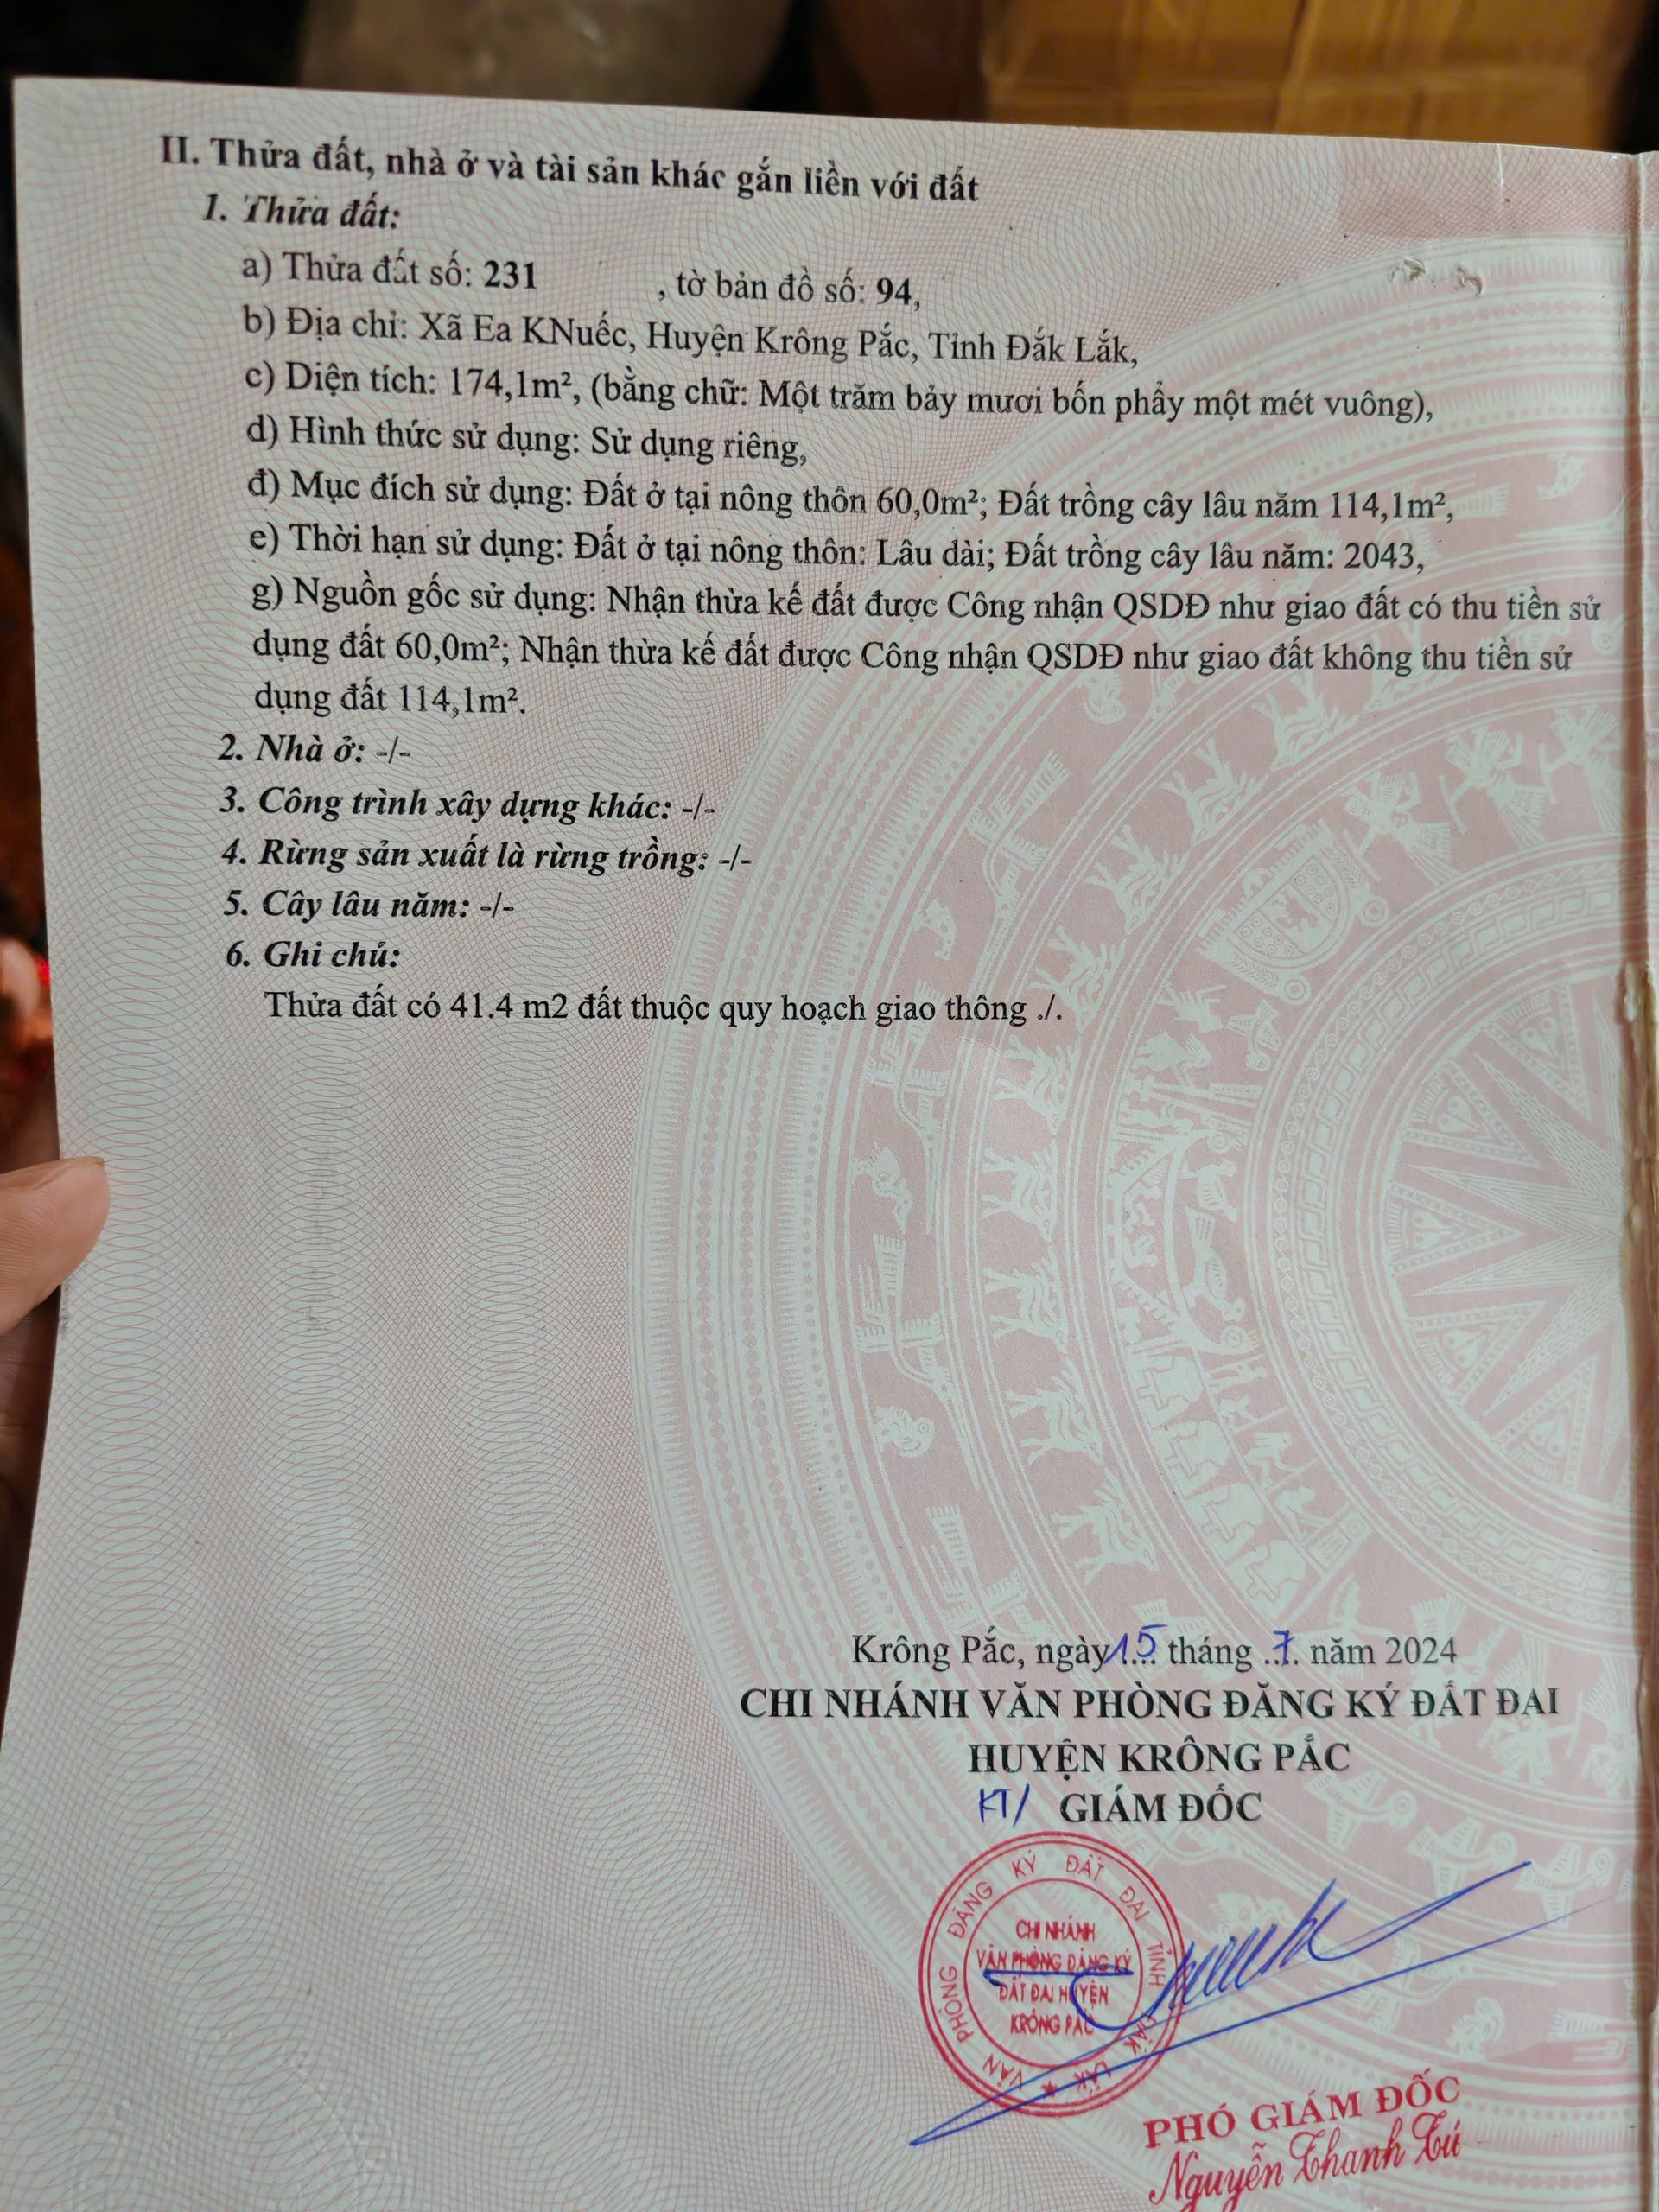 II. Thửa đất, nhà ở và tài sản khác gắn liền với đất
1. Thửa đất:
a) Thửa đất số: 231 , tờ bản đồ số: 94,
b) Địa chỉ: Xã Ea KNuếc, Huyện Krông Pắc, Tỉnh Đắk Lắk,
c) Diện tích: 174,1m², (bằng chữ: Một trăm bảy mươi bốn phẩy một mét vuông),
d) Hình thức sử dụng: Sử dụng riêng,
đ) Mục đích sử dụng: Đất ở tại nông thôn 60,0m²; Đất trồng cây lâu năm 114,1m²,
e) Thời hạn sử dụng: Đất ở tại nông thôn: Lâu dài; Đất trồng cây lâu năm: 2043,
g) Nguồn gốc sử dụng: Nhận thừa kế đất được Công nhận QSDĐ như giao đất có thu tiền sử
dụng đất 60,0m²; Nhận thừa kế đất được Công nhận QSDĐ như giao đất không thu tiền sử
dụng đất 114,1m².
2. Nhà ở: -/-
3. Công trình xây dựng khác: -/-
4. Rừng sản xuất là rừng trồng: -/-
5. Cây lâu năm: -/-
6. Ghi chú:
Thửa đất có 41.4 m2 đất thuộc quy hoạch giao thông ./.
Krông Pắc, ngày 15 tháng 7 năm 2024
CHI NHÁNH VĂN PHÒNG ĐĂNG KÝ ĐẤT ĐAI
HUYỆN KRÔNG PẮC
KT/ GIÁM ĐỐC
VĂN PHÒNG ĐĂNG KÝ ĐẤT ĐAI TỈNH ĐẮK LẮK
CHI NHÁNH
VĂN PHÒNG ĐĂNG KÝ
ĐẤT ĐAI HUYỆN
KRÔNG PẮC
PHÓ GIÁM ĐỐC
Nguyễn Thanh Tú